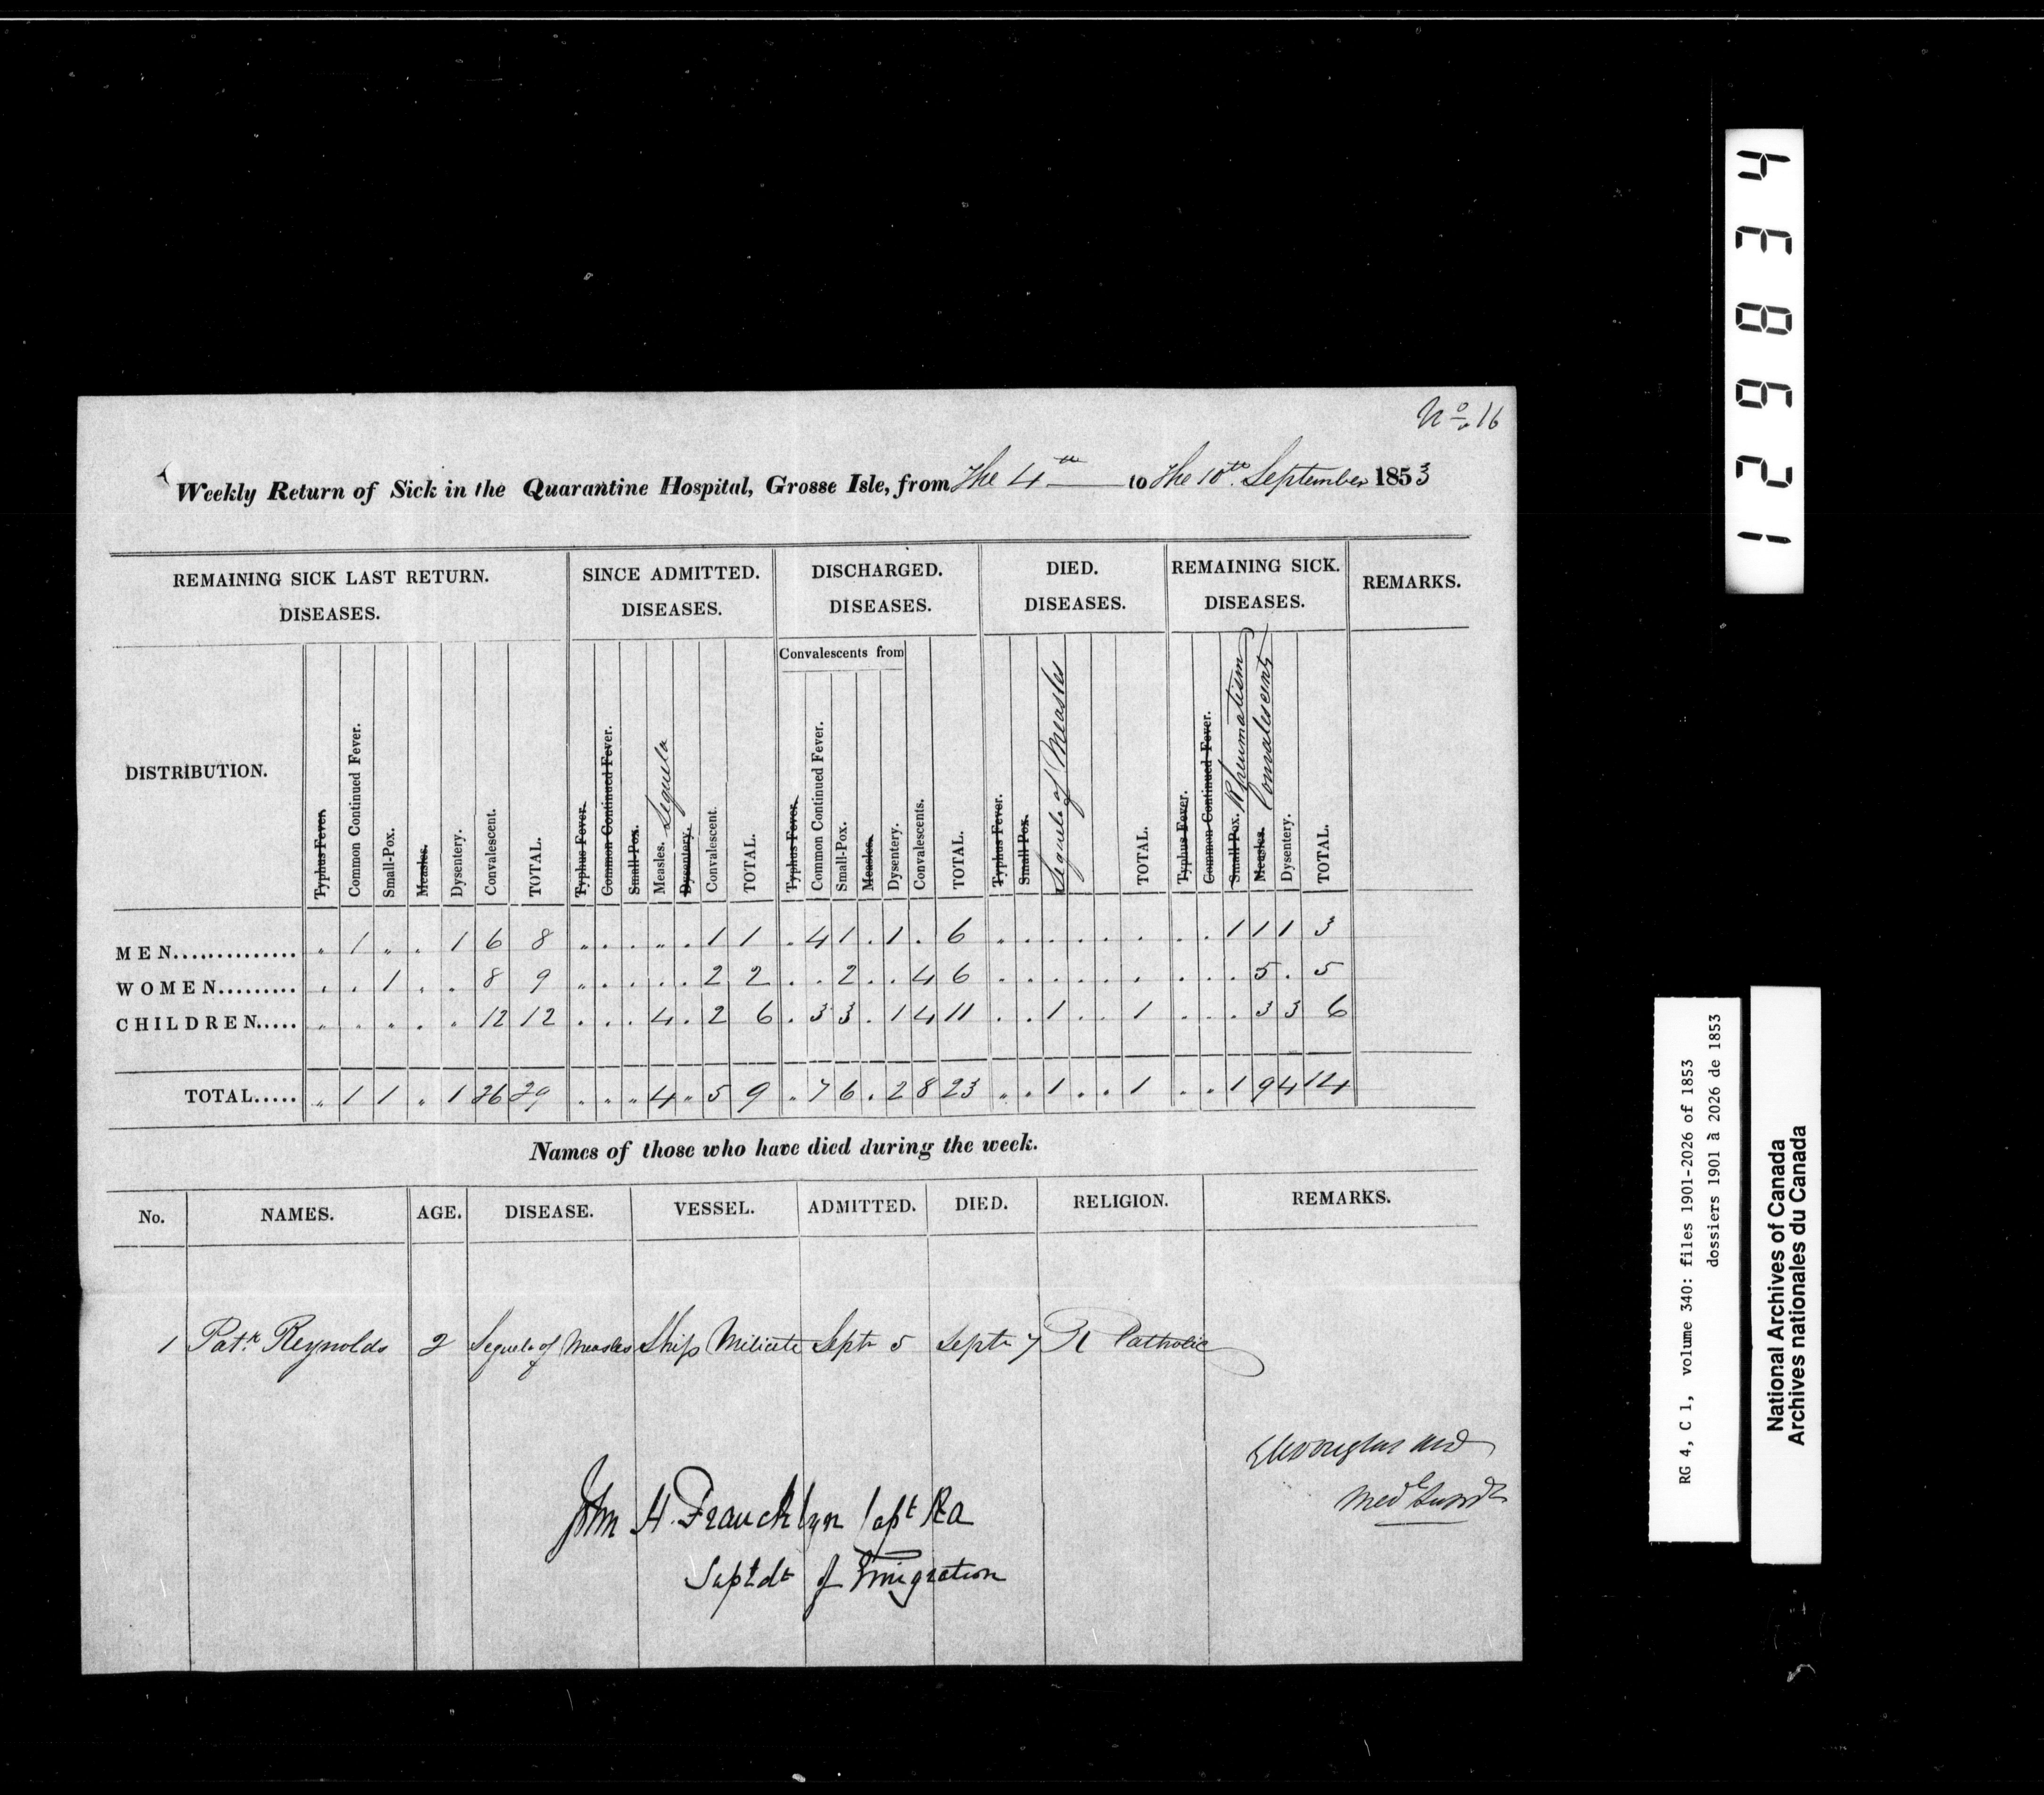 No. 16
Weekly Return of Sick in the Quarantine Hospital, Grosse Isle, from The 4th to The 10th September 1853
REMAINING SICK LAST RETURN. SINCE ADMITTED. DISCHARGED. DIED. REMAINING SICK. REMARKS.
DISEASES. DISEASES. DISEASES. DISEASES. DISEASES.
Convalescents from
DISTRIBUTION.
Typhus Fever.
Common Continued Fever.
Small-Pox.
Measles.
Dysentery.
Convalescent.
TOTAL.
Typhus Fever.
Common Continued Fever.
Small-Pox.
Measles. Sequela
Dysentery.
Convalescent.
TOTAL.
Typhus Fever.
Common Continued Fever.
Small-Pox.
Measles.
Dysentery.
Convalescents.
TOTAL.
Typhus Fever.
Small Pox.
Sequela of Measles
TOTAL.
Typhus Fever.
Common Continued Fever.
Small Pox. Rheumatism
Measles. Convalescents
Dysentery.
TOTAL.
MEN.............. „ 1 „ . 1 6 8 „ . . „ . 1 1 . 4 1 . 1 . 6 „ . . . . . . . 1 1 1 3
WOMEN......... . . 1 . . 8 9 „ . . . . 2 2 . . 2 . . 4 6 . . . . . . . . . 5 . 5
CHILDREN..... „ . „ . „ 12 12 . . . 4 . 2 6 . 3 3 . 1 4 11 . . 1 . . 1 . . . 3 3 6
TOTAL..... „ 1 1 „ 1 26 29 . „ „ 4 „ 5 9 „ 7 6 . 2 8 23 „ . 1 . . 1 . „ 1 9 4 14
Names of those who have died during the week.
No. NAMES. AGE. DISEASE. VESSEL. ADMITTED. DIED. RELIGION. REMARKS.
1 Patk Reynolds 2 Sequela of Measles Ship Milicete Septr 5 Septr 7 R Catholic
Douglas MD
Med Supdt
John H. Francklyn Capt RA
Suptdt of Emigration
129834
RG 4, C 1, volume 340: files 1901-2026 of 1853
dossiers 1901 à 2026 de 1853
National Archives of Canada
Archives nationales du Canada